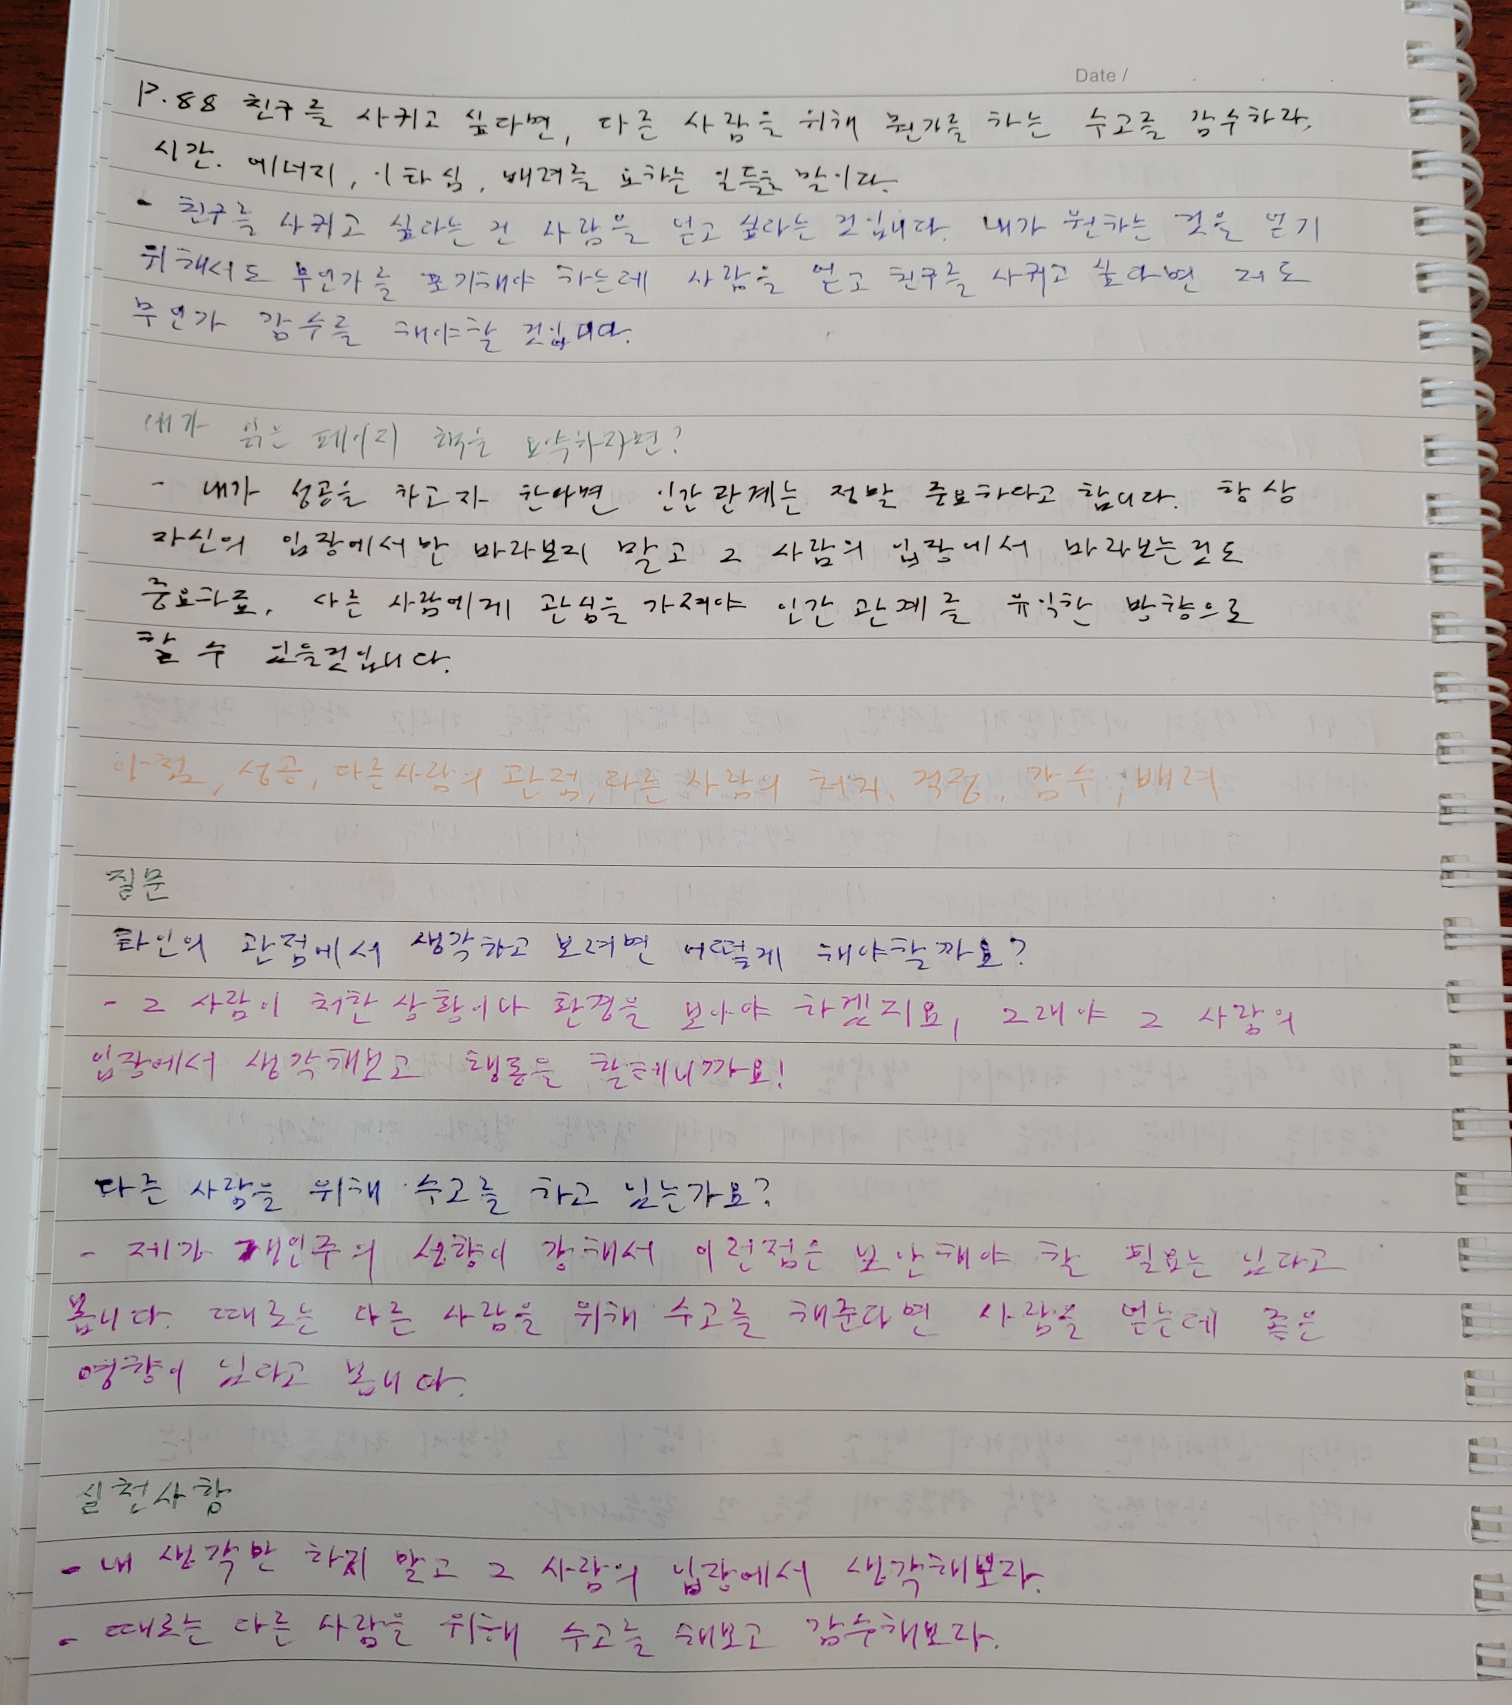 Date /
P.88 친구를 사귀고 싶다면, 다른 사람을 위해 뭔가를 하는 수고를 감수하라.
시간. 에너지, 이타심, 배려를 요하는 일들을 말이다.
- 친구를 사귀고 싶다는 건 사람을 얻고 싶다는 것입니다. 내가 원하는 것을 얻기
위해서도 무언가를 포기해야 하는데 사람을 얻고 친구를 사귀고 싶다면 저도
무언가 감수를 해야할 것입니다.
내가 읽은 페이지 책을 요약하라면?
- 내가 성공을 하고자 한다면 인간관계는 정말 중요하다고 합니다. 항상
자신의 입장에서만 바라보지 말고 그 사람의 입장에서 바라보는것도
중요하죠, 다른 사람에게 관심을 가져야 인간관계를 유익한 방향으로
할 수 있을것입니다.
성공, 다른사람의 관점, 다른 사람의 처지, 걱정, 감수, 배려
질문
타인의 관점에서 생각하고 보려면 어떻게 해야할까요?
- 그 사람이 처한 상황이나 환경을 보아야 하겠지요, 그래야 그 사람의
입장에서 생각해보고 행동을 할테니까요!
다른 사람을 위해 수고를 하고 있는가요?
- 제가 개인주의 성향이 강해서 이런점은 보안해야 할 필요는 있다고
봅니다. 때로는 다른 사람을 위해 수고를 해준다면 사람을 얻는데 좋은
영향이 있다고 봅니다.
실천사항
- 내 생각만 하지 말고 그 사람의 입장에서 생각해보라.
- 때로는 다른 사람을 위해 수고를 해보고 감수해보라.